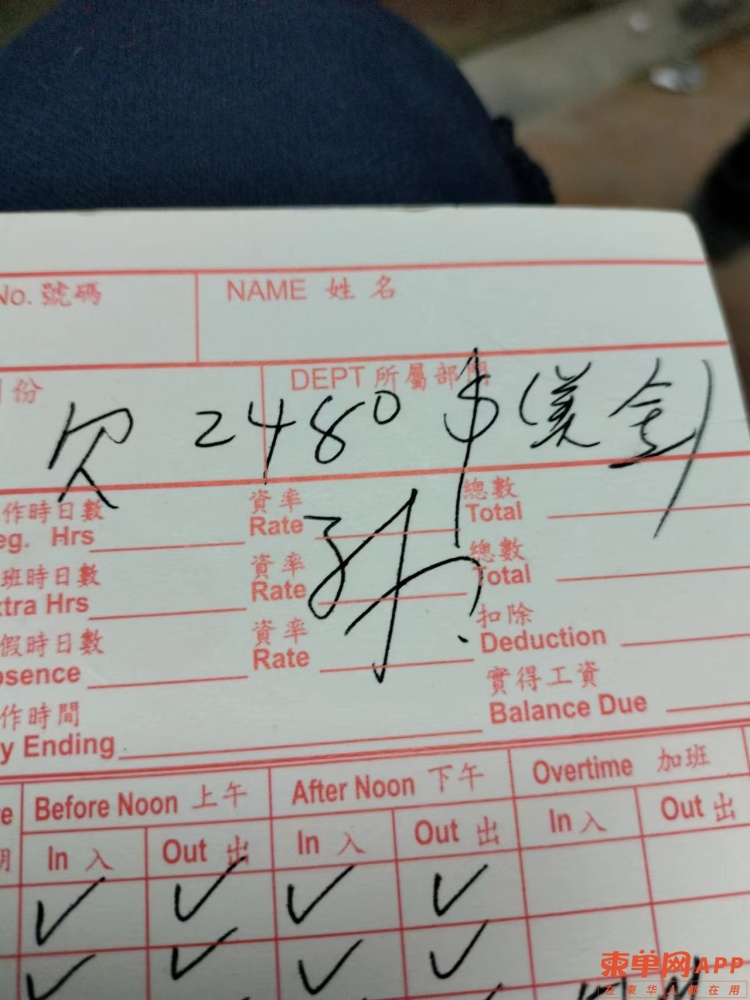 No. 號碼
NAME 姓名
月份
DEPT 所屬部門
欠 2480 $ (美金)
作時日數 資率 總數
eg. Hrs Rate Total
班時日數 資率 總數
xtra Hrs Rate Total
假時日數 資率 扣除
bsence Rate Deduction
實得工資
Balance Due
作時間
y Ending
Before Noon 上午 After Noon 下午 Overtime 加班
In 入 Out 出 In 入 Out 出 In 入 Out 出
期
柬单网APP
在柬华人都在用